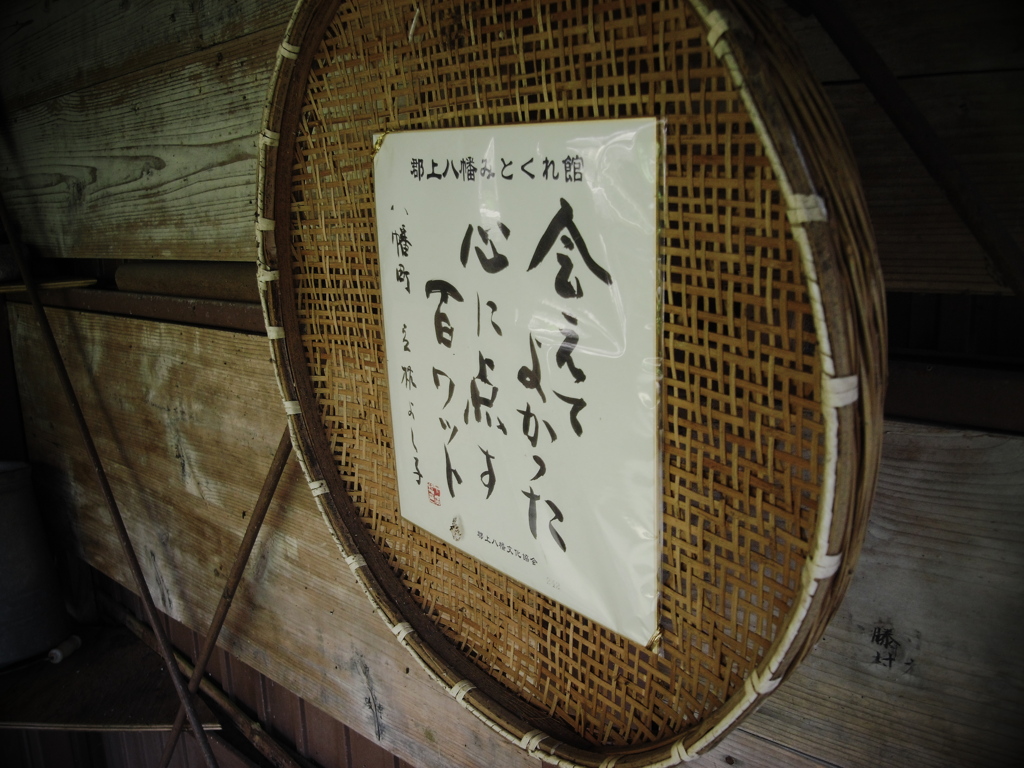 郡上八幡みとくれ館
会えて
よかった
心に点す
百ワット
八幡町 立林よし子
郡上八幡文化協会
藤村